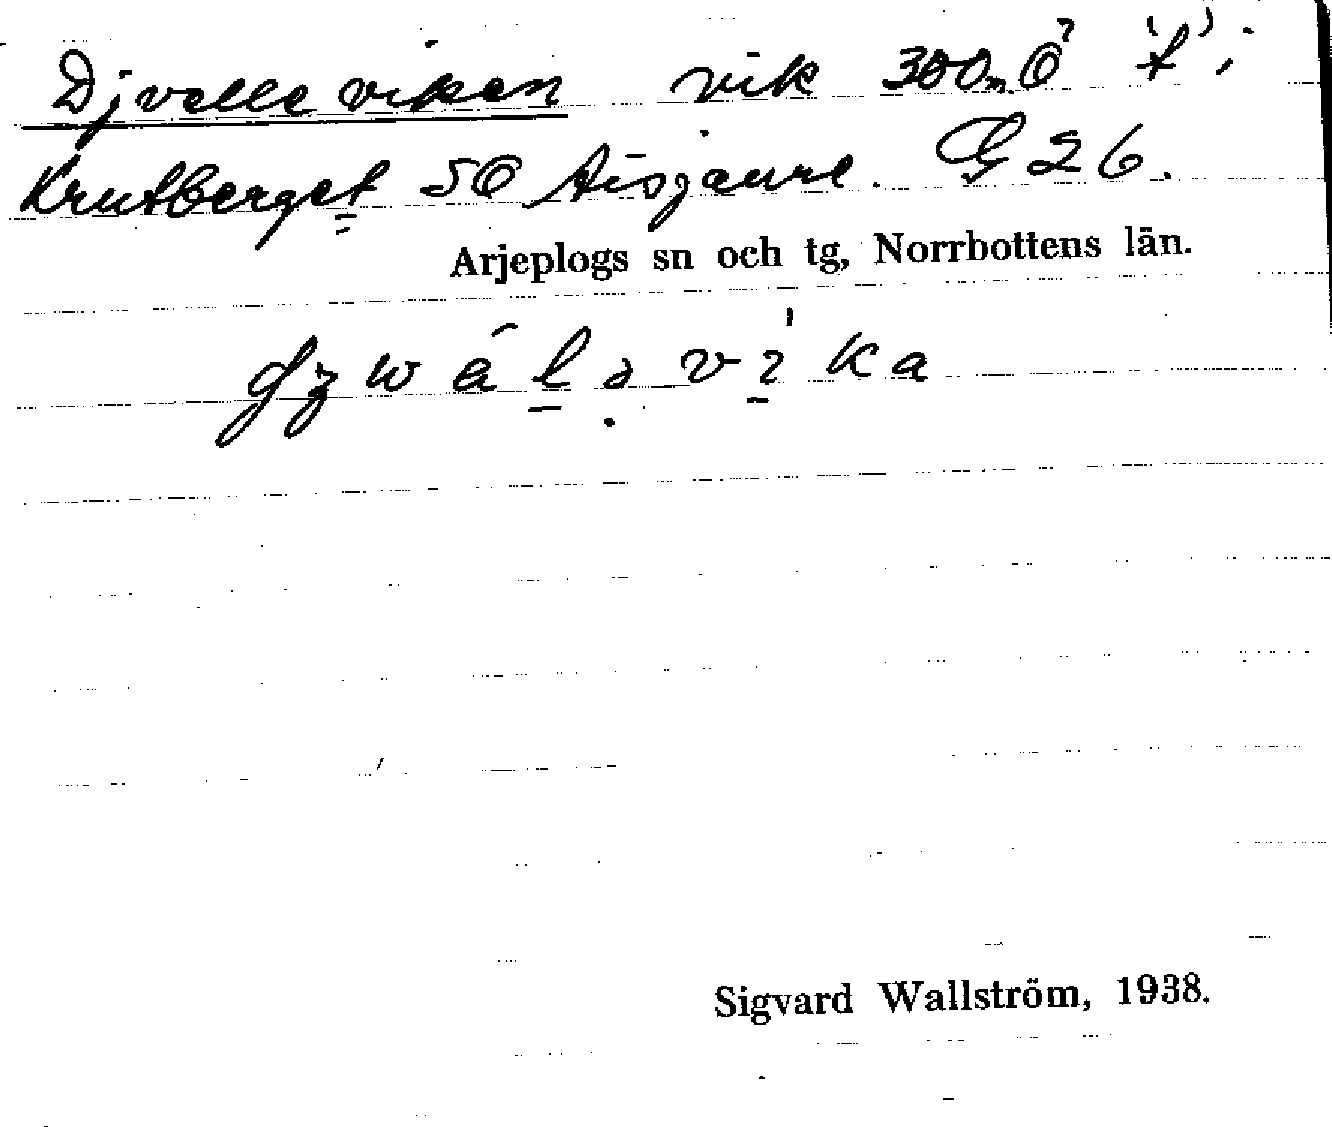 Djvelleviken vik 300m Ö
Krutberget SO Aisjaure. G 26.
Arjeplogs sn och tg, Norrbottens län.
Sigvard Wallström, 1938.